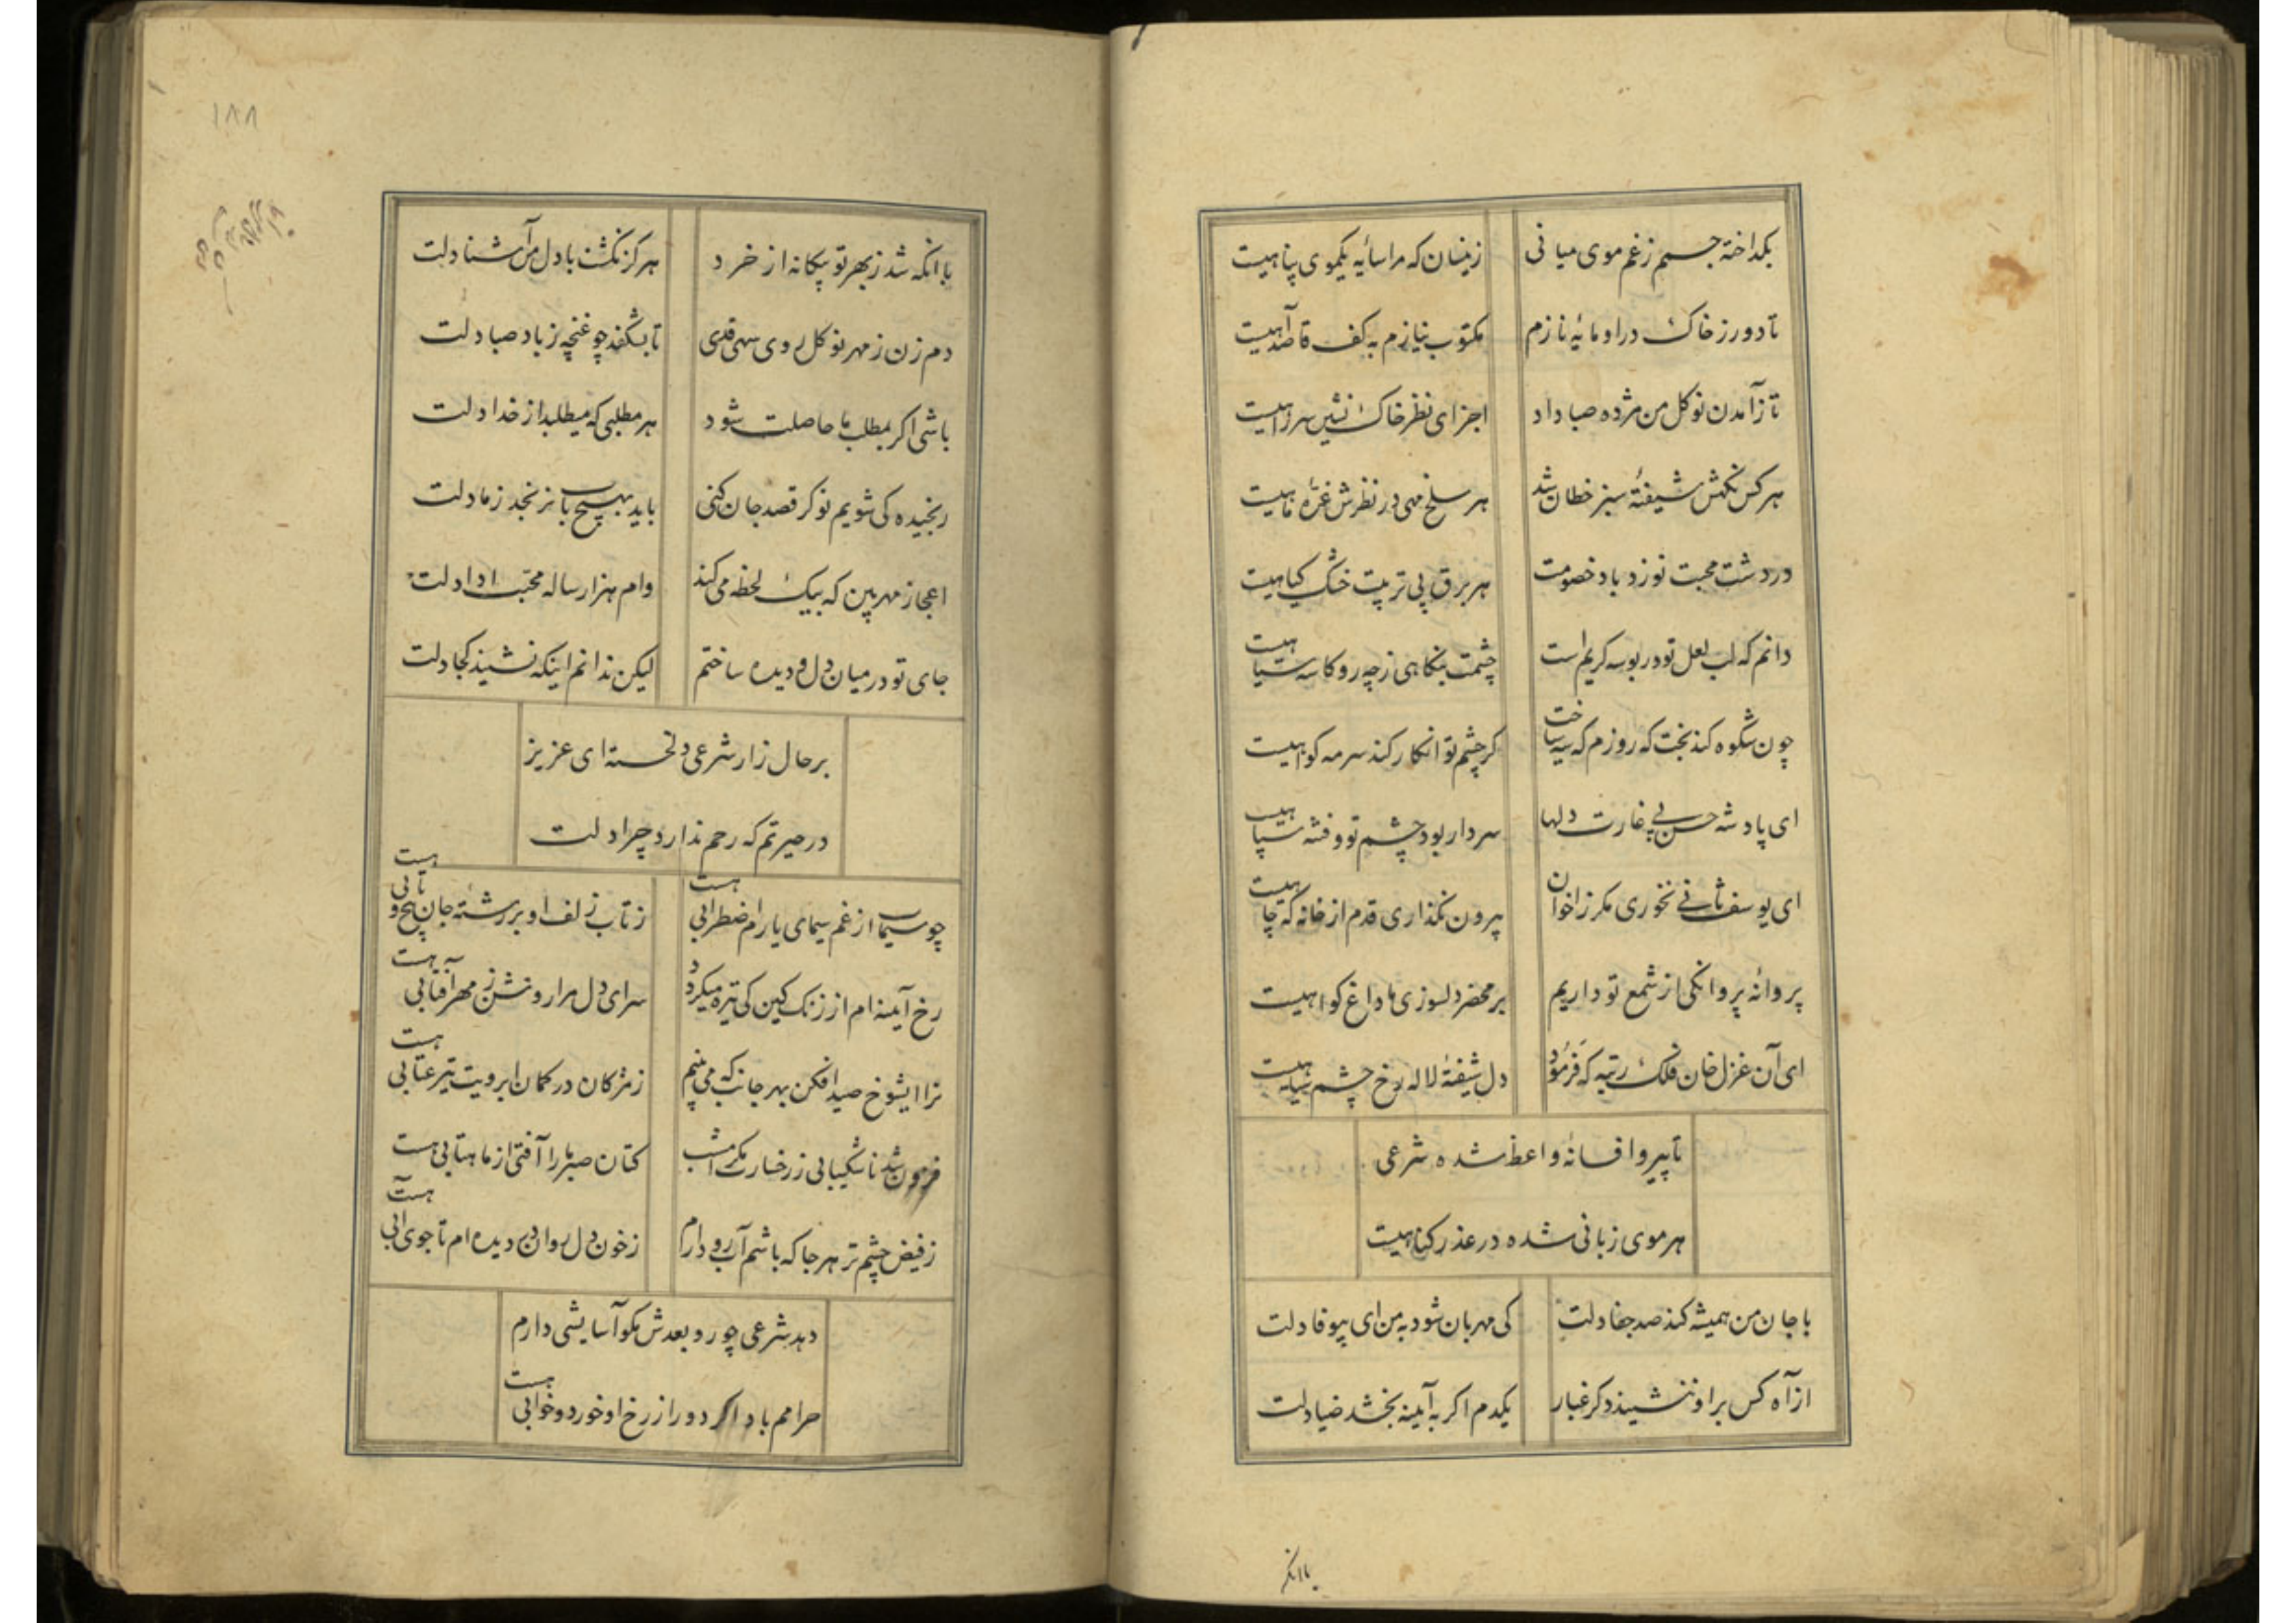 بکداخته جسم ز غم موی میانی زینسان که مرا سایه یکموی پناهیست
تا دور ز خاک در او مایه نازم مکتوب نیازم به کف قاصد آهیست
تا ز آمدن نوکل من مژده صبا داد اجزای نظر خاک نشین سر راهیست
هر کس نکهش شیفته سبز خطان شد هر سلخ مهی در نظرش غره ماهیست
در دشت محبت نوزد باد خصومت هر برق پی تربیت خشک کیاهیست
دانم که لب لعل تو در بوسه کریم است چشمت بنکاهی ز چه رو کاسه سیاهیست
چون شکوه کند بخت که روزم که سیه ساخت کر چشم تو انکار کند سرمه کواهیست
ای پادشه حسن پی غارت دلها سردار بود چشم تو و فتنه سپاهیست
ای یوسف ثانی نخوری مکر ز اخوان بیرون نکذاری قدم از خانه که چاهیست
پروانه پروانکی از شمع تو داریم بر محضر دلسوزی ما داغ کواهیست
ای آن غزل خان فلک رتبه که فرمود دل شیفته لاله رخ چشم سیاهیست
تا پیرو افسانه واعظ شده شرعی
هر موی زبانی شده در عذر کناهیست
با جان من همیشه کند صد جفا دلت کی مهربان شود به من ای بیوفا دلت
از آه کس بر او ننشیند دکر غبار یکدم اکر به آیینه بخشد ضیا دلت
باانکه
۱۸۸
با انکه شد ز بهر تو بیکانه از خرد هرکز نکشت با دل من آشنا دلت
دم زن ز مهر نوکل روی سهی قدی تا بشکفد چو غنچه ز باد صبا دلت
باشی اکر بمطلب ما حاصلت شود هر مطلبی که میطلبد از خدا دلت
رنجیده کی شویم توکر قصد جان کنی باید بهیچ باب نرنجد ز ما دلت
اعجاز مهر بین که بیک لحظه می کند وام هزار ساله محبت ادا دلت
جای تو در میان دل و دیده ساختم لیکن ندانم اینکه نشیند کجا دلت
بر حال زار شرعی دلخسته ای عزیز
در حیرتم که رحم ندارد چرا دلت
چو سیماب از غم سیمای یارام ضطرابی هست ز تاب زلف او بر رشته جان پیچ و تابی هست
رخ آیینه ام از زنک کین کی تیره میکردد سرای دل مرا روشن ز مهر آفتابی هست
ترا ایشوخ صید افکن بهر جانب که می بینم ز مژکان در کمان ابرویت تیر عتابی هست
فزون شد ناشکیبایی ز رخسارت مکر امشب کتان صبر ما را آفتی از ماهتابی هست
ز فیض چشم تر هر جا که باشم آب رو دارم ز خون دل روان بر دیده ام تا جوی آبی هست
دهد شرعی چو رو بعدش مکو آسایشی دارم
حرامم باد اکر دور از رخ او خورد و خوابی هست